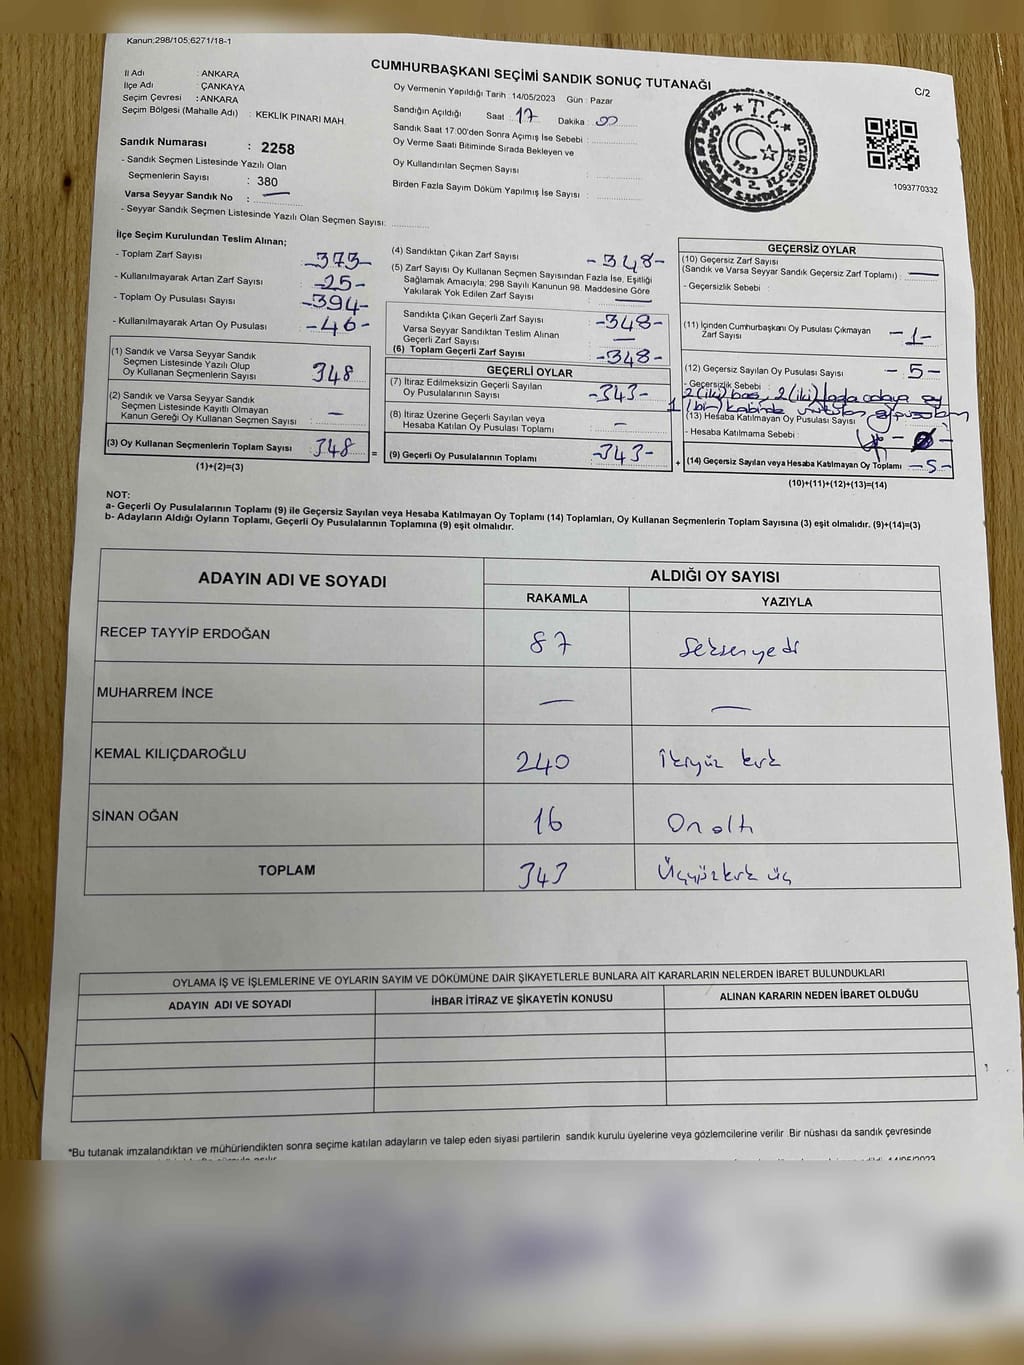 Kanun;298/105;6271/18-1
CUMHURBAŞKANI SEÇİMİ SANDIK SONUÇ TUTANAĞI
C/2
İl Adı : ANKARA
İlçe Adı : ÇANKAYA
Seçim Çevresi : ANKARA
Seçim Bölgesi (Mahalle Adı) : KEKLİK PINARI MAH.
Sandık Numarası : 2258
- Sandık Seçmen Listesinde Yazılı Olan
Seçmenlerin Sayısı : 380
Varsa Seyyar Sandık No : —
- Seyyar Sandık Seçmen Listesinde Yazılı Olan Seçmen Sayısı:
Oy Vermenin Yapıldığı Tarih : 14/05/2023 Gün : Pazar
Sandığın Açıldığı Saat : 17 Dakika : 00
Sandık Saat 17.00'den Sonra Açımış İse Sebebi :
Oy Verme Saati Bitiminde Sırada Bekleyen ve
Oy Kullandırılan Seçmen Sayısı :
Birden Fazla Sayım Döküm Yapılmış İse Sayısı :
T.C.
ÇANKAYA 2. İLÇESİ
1973
1093770332
İlçe Seçim Kurulundan Teslim Alınan;
- Toplam Zarf Sayısı : -373-
- Kullanılmayarak Artan Zarf Sayısı : -25-
- Toplam Oy Pusulası Sayısı : -394-
- Kullanılmayarak Artan Oy Pusulası : -46-
(1) Sandık ve Varsa Seyyar Sandık
Seçmen Listesinde Yazılı Olup
Oy Kullanan Seçmenlerin Sayısı : 348
(2) Sandık ve Varsa Seyyar Sandık
Seçmen Listesinde Kayıtlı Olmayan
Kanun Gereği Oy Kullanan Seçmen Sayısı : —
(3) Oy Kullanan Seçmenlerin Toplam Sayısı : 348 =
(1)+(2)=(3)
(4) Sandıktan Çıkan Zarf Sayısı : -348-
(5) Zarf Sayısı Oy Kullanan Seçmen Sayısından Fazla İse, Eşitliği
Sağlamak Amacıyla; 298 Sayılı Kanunun 98. Maddesine Göre
Yakılarak Yok Edilen Zarf Sayısı : —
Sandıkta Çıkan Geçerli Zarf Sayısı : -348-
Varsa Seyyar Sandıktan Teslim Alınan
Geçerli Zarf Sayısı : —
(6) Toplam Geçerli Zarf Sayısı : -348-
GEÇERLİ OYLAR
(7) İtiraz Edilmeksizin Geçerli Sayılan
Oy Pusulalarının Sayısı : -343-
(8) İtiraz Üzerine Geçerli Sayılan veya
Hesaba Katılan Oy Pusulası Toplamı : —
(9) Geçerli Oy Pusulalarının Toplamı : -343- +
GEÇERSİZ OYLAR
(10) Geçersiz Zarf Sayısı
(Sandık ve Varsa Seyyar Sandık Geçersiz Zarf Toplamı) : —
- Geçersizlik Sebebi :
(11) İçinden Cumhurbaşkanı Oy Pusulası Çıkmayan
Zarf Sayısı : -1-
(12) Geçersiz Sayılan Oy Pusulası Sayısı : -5-
- Geçersizlik Sebebi :
2 (iki) boş, 2 (iki) fazla adaya oy
1 (bir) kabinde unutulan oy pusulası
(13) Hesaba Katılmayan Oy Pusulası Sayısı :
- Hesaba Katılmama Sebebi :
(14) Geçersiz Sayılan veya Hesaba Katılmayan Oy Toplamı : -5-
(10)+(11)+(12)+(13)=(14)
NOT:
a- Geçerli Oy Pusulalarının Toplamı (9) ile Geçersiz Sayılan veya Hesaba Katılmayan Oy Toplamı (14) Toplamları, Oy Kullanan Seçmenlerin Toplam Sayısına (3) eşit olmalıdır. (9)+(14)=(3)
b- Adayların Aldığı Oyların Toplamı, Geçerli Oy Pusulalarının Toplamına (9) eşit olmalıdır.
ADAYIN ADI VE SOYADI ALDIĞI OY SAYISI
RAKAMLA YAZIYLA
RECEP TAYYİP ERDOĞAN 87 seksenyedi
MUHARREM İNCE — —
KEMAL KILIÇDAROĞLU 240 İkiyüz kırk
SİNAN OĞAN 16 On altı
TOPLAM 343 Üçyüzkırk üç
OYLAMA İŞ VE İŞLEMLERİNE VE OYLARIN SAYIM VE DÖKÜMÜNE DAİR ŞİKAYETLERLE BUNLARA AİT KARARLARIN NELERDEN İBARET BULUNDUKLARI
ADAYIN ADI VE SOYADI İHBAR İTİRAZ VE ŞİKAYETİN KONUSU ALINAN KARARIN NEDEN İBARET OLDUĞU
*Bu tutanak imzalandıktan ve mühürlendikten sonra seçime katılan adayların ve talep eden siyasi partilerin sandık kurulu üyelerine veya gözlemcilerine verilir Bir nüshası da sandık çevresinde